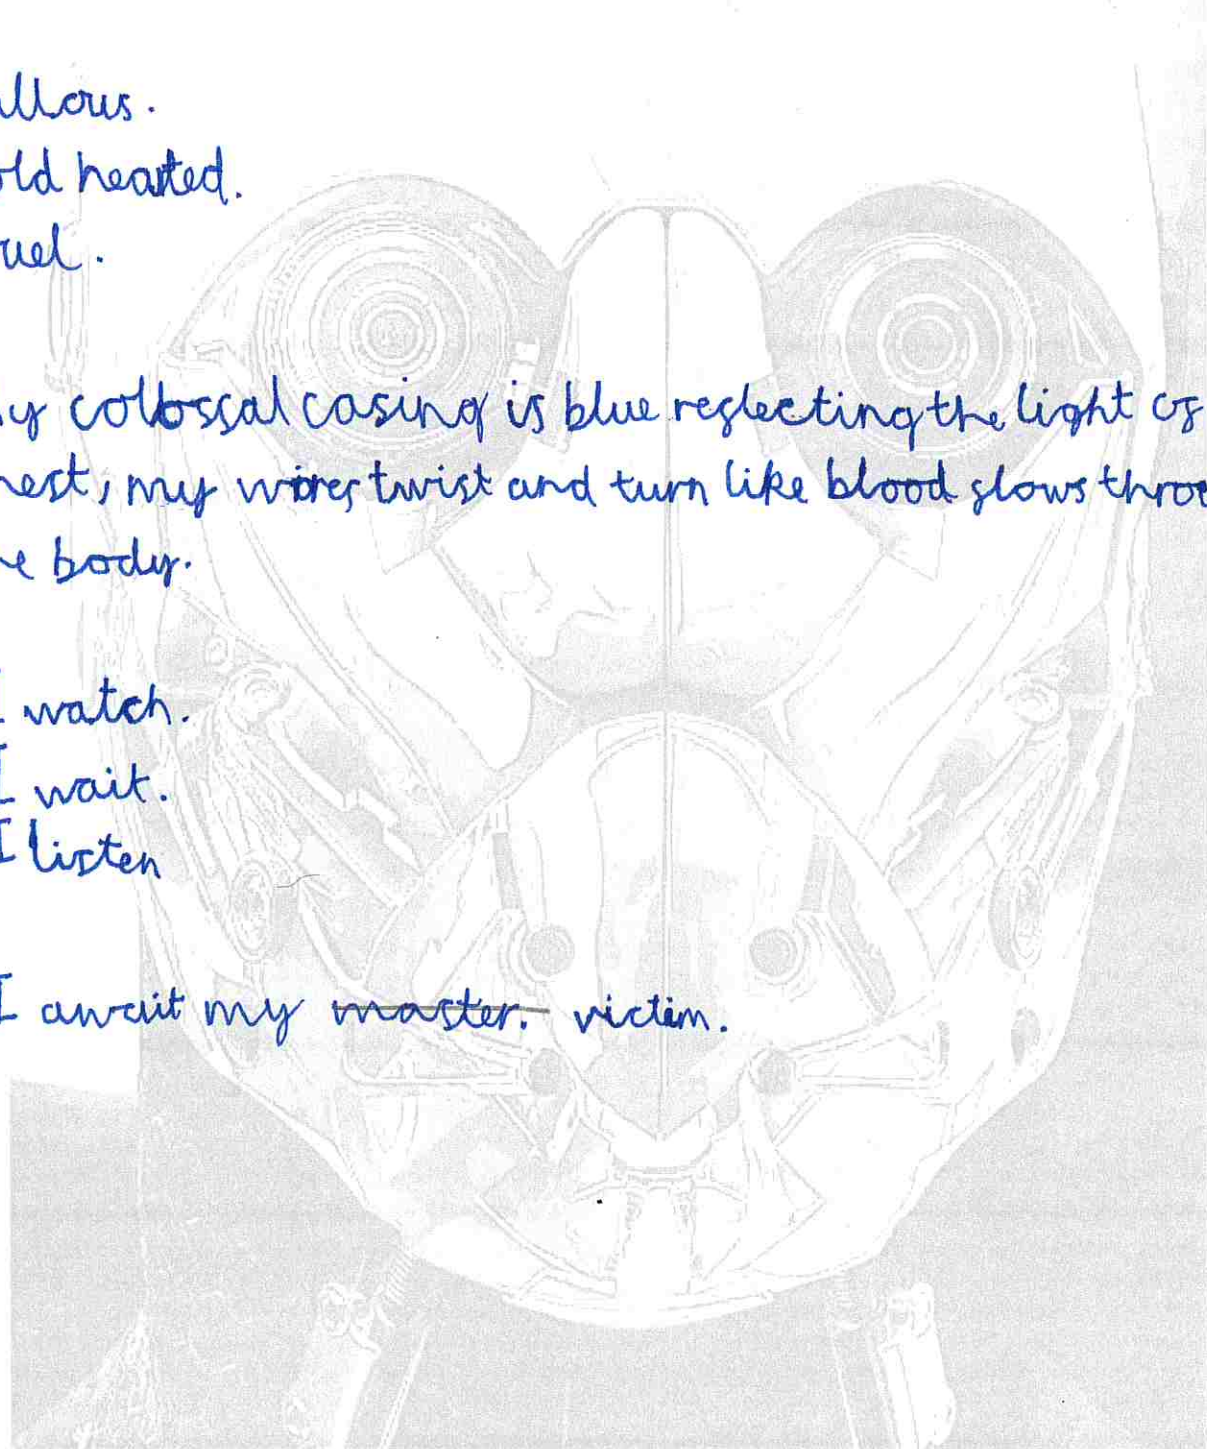 allous.
old hearted.
ruel.
y colossal casing is blue reflecting the light of
hest, my wires twist and turn like blood flows throu
e body.
I watch.
I wait.
I listen
I await my master. victim.